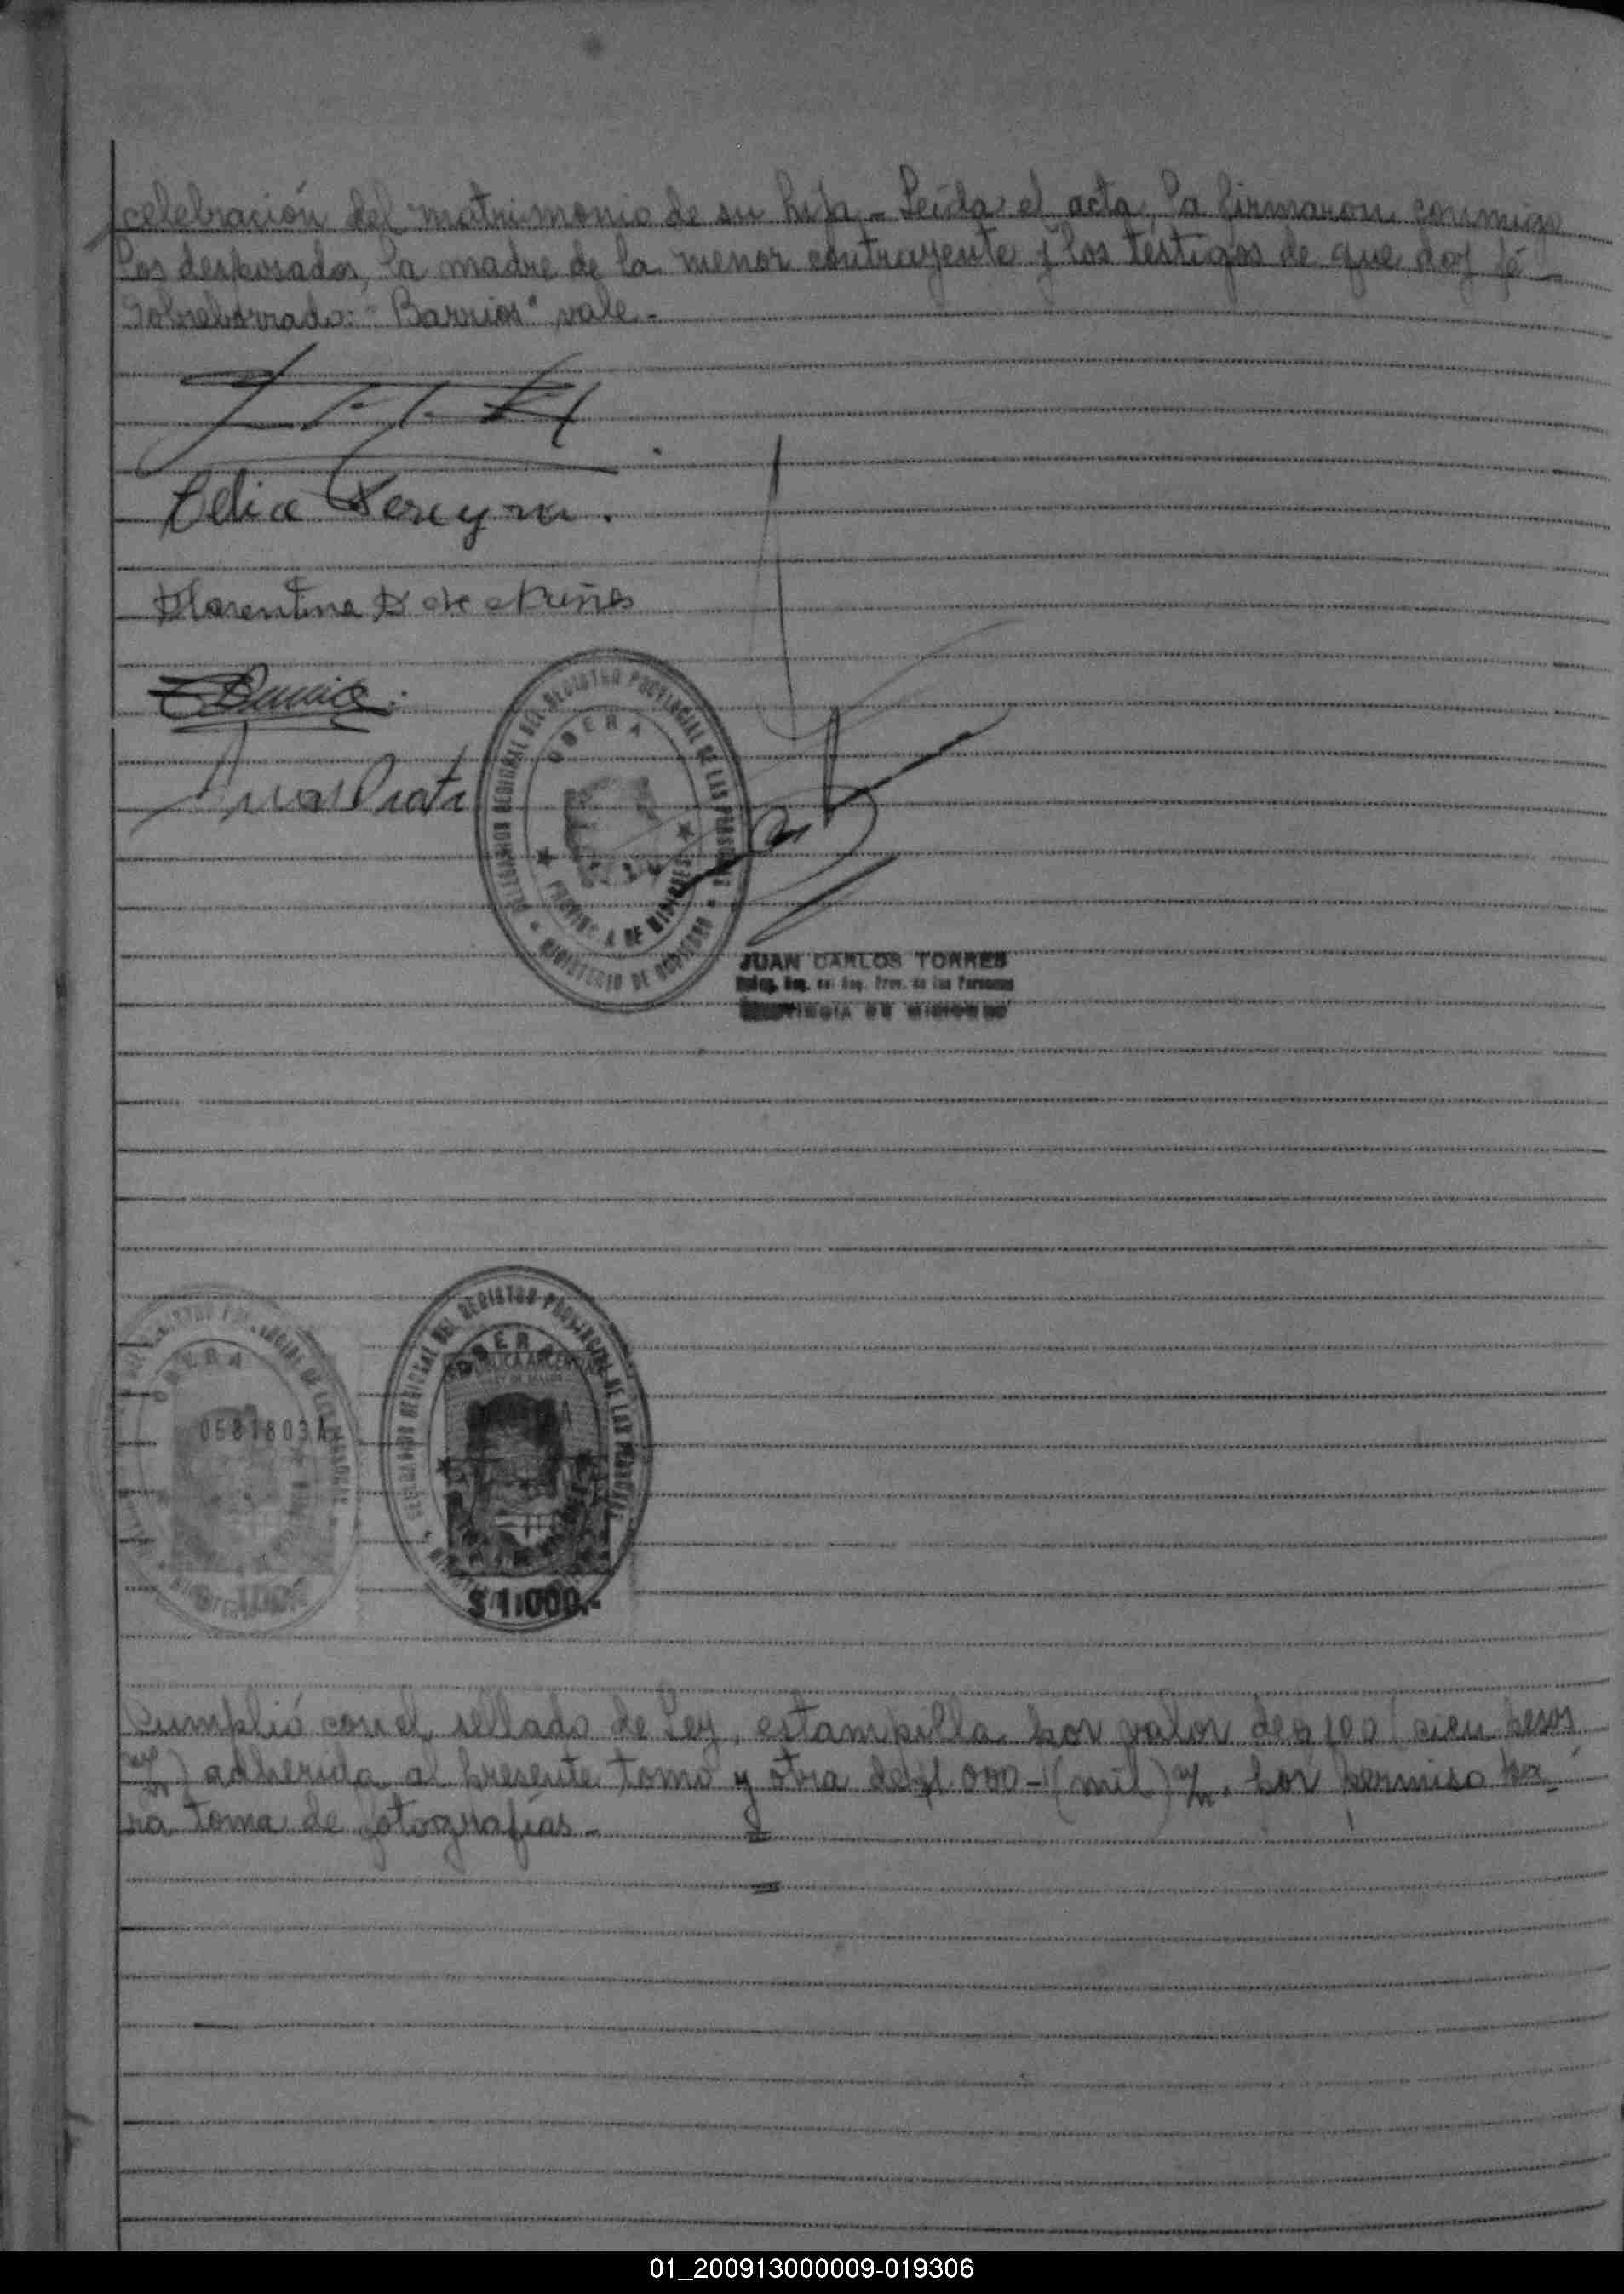 celebración del matrimonio de su hija - Leída el acta, la firmaron conmigo
los desposados, la madre de la menor contrayente y los testigos de que doy fé -
Sobreborrado: "Barrios" vale -
Celia Pereyra.
Florentina D de Nuñes
DELEGACION REGIONAL DEL REGISTRO PROVINCIAL DE LAS PERSONAS
OBERA
PROVINCIA DE MISIONES
MINISTERIO DE GOBIERNO
JUAN CARLOS TORRES
Deleg. Reg. del Reg. Prov. de las Personas
PROVINCIA DE MISIONES
OBERA
0681803A
REPUBLICA ARGENTINA
LEY DE SELLOS
$ 1.000.-
Cumplió con el sellado de Ley, estampilla por valor de $ 100 (cien pesos
m/n) adherida al presente tomo y otra de $1.000-(mil) m/n. por permiso pa-
ra toma de fotografías -
01_200913000009-019306